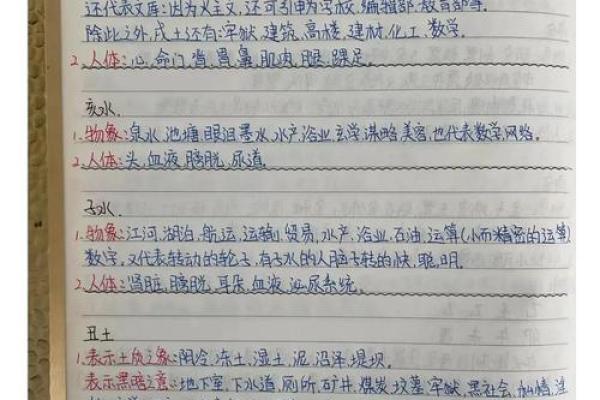 还代表文库:因为火主文,还可引申为学校,编辑部,教育部等.
除此之外,戌土还有:牢狱,建筑,高楼,建材,化工,数学.
2.人体:心,命门,背,胃,鼻,肌肉,腿,踝足.
亥水.
1.物象:泉水,池塘,眼泪,墨水,水产,浴业,玄学,谋略,美容,也代表数学,网络.
2.人体:头,血液,膀胱,尿道.
子水.
1.物象:江河,湖泊,航运,运输,贸易,水产,浴业,石油,运算(小而精密的运算)
数字,又代表转动的轮子,有子水的人脑子转的快,聪明.
2.人体:肾脏,膀胱,耳朵,血液,泌尿系统.
丑土
1.表示土质之象:阴冷,冻土,湿土,泥,沼泽,堤坝.
表示黑暗之意:地下室,下水道,厕所,矿井,煤炭,坟墓,牢狱,黑社会,